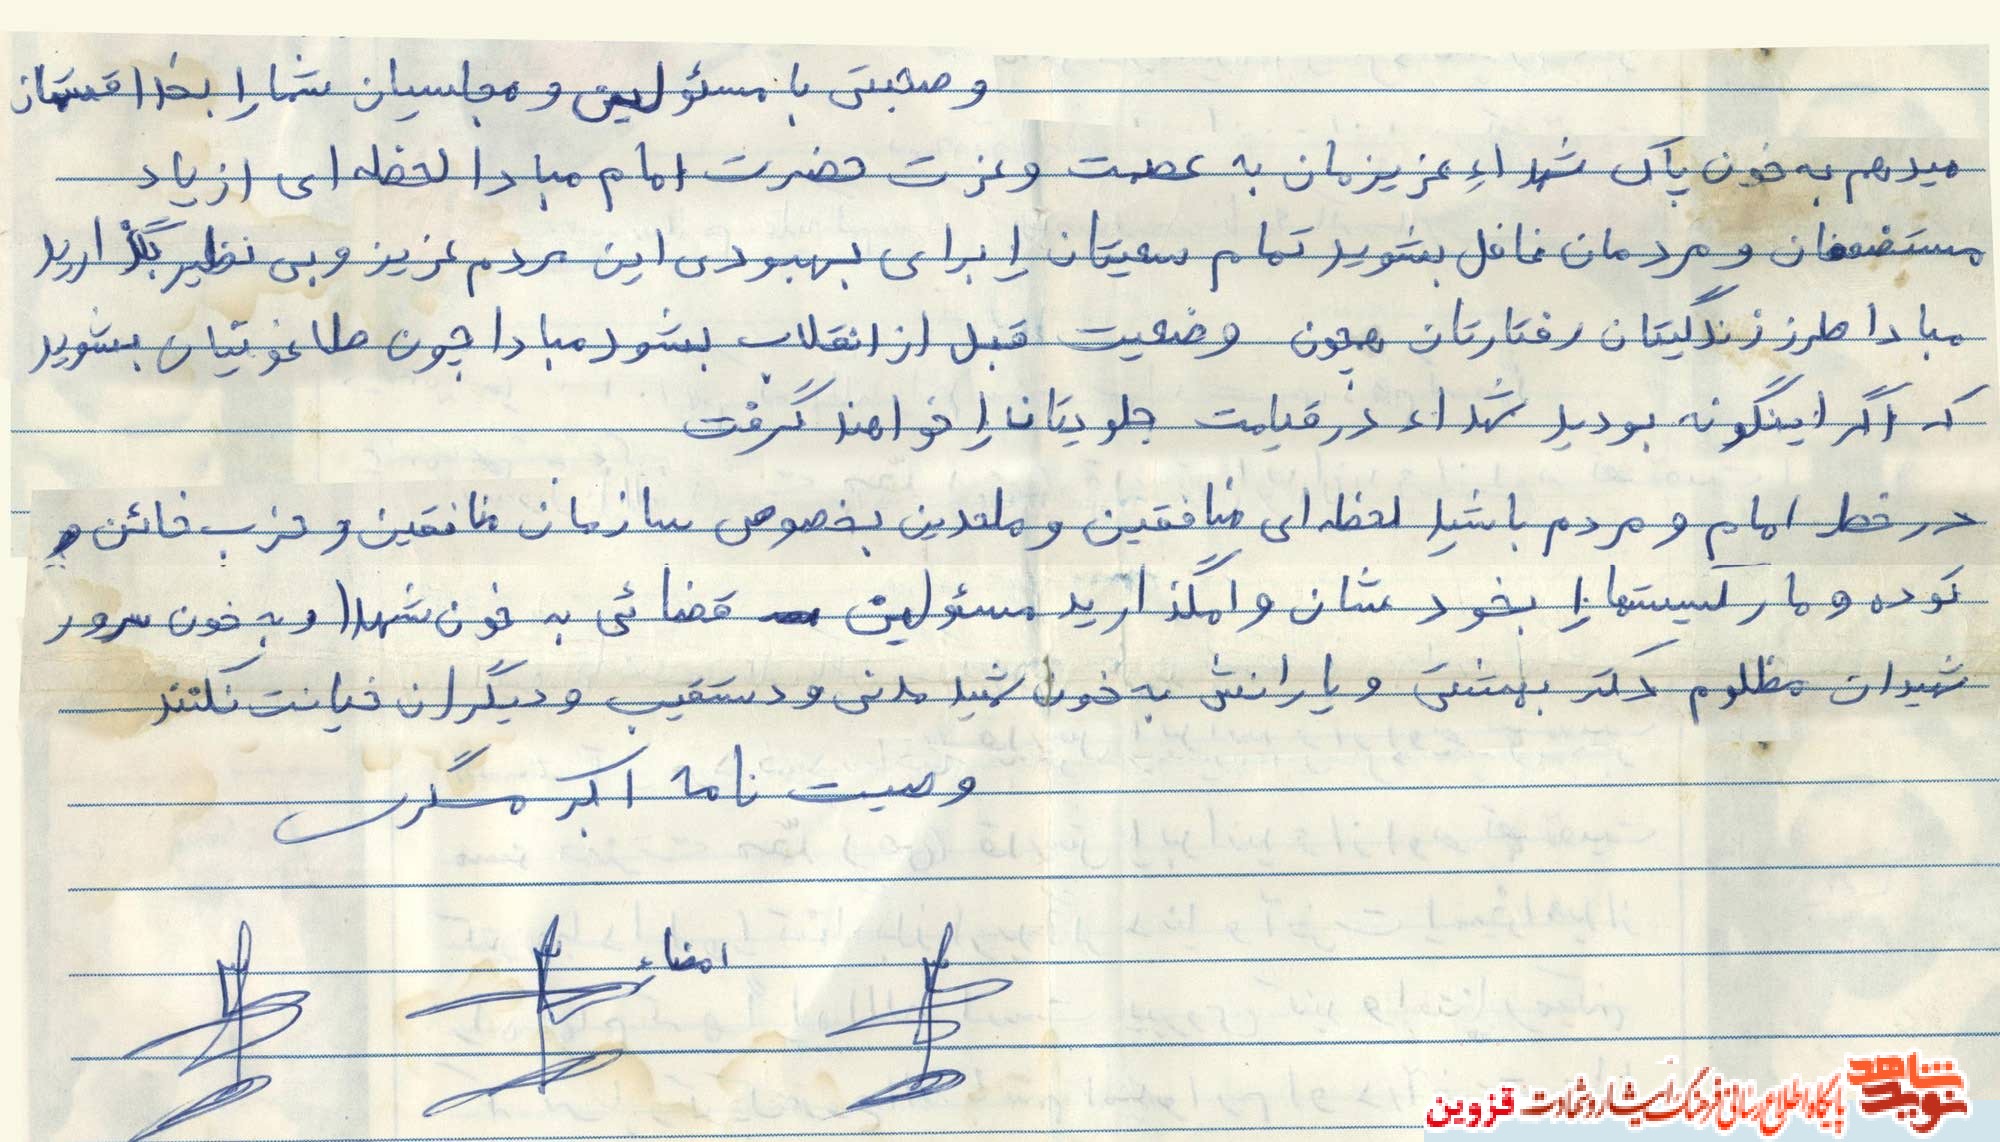 و صحبتی با مسئولین و مجلسیان شما را بخدا قسمتان
میدهم به خون پاک شهداء عزیزمان به عصمت و عزت حضرت امام مبادا لحظه ای از یاد
مستضعفان و مردمان غافل بشوید تمام سعیتان را برای بهبودی این مردم عزیز و بی نظیر بگذارید
مبادا طرز زندگیتان رفتارتان همچون وضعیت قبل از انقلاب بشود مبادا چون طاغوتیان بشوید
که اگر اینگونه بودید شهداء در قیامت جلویتان را خواهند گرفت
در خط امام و مردم باشید لحظه ای منافقین و ملحدین بخصوص سازمان منافقین و حزب خائن
توده و مارکسیستها را بخودشان وامگذارید مسئولین قضائی به خون شهدا و به خون سرور
شهیدان مظلوم دکتر بهشتی و یارانش به خون شهید مدنی و دستغیب و دیگران خیانت نکنند
وصیت نامه اکبر مسگری
امضاء
نوید شاهد
پایگاه اطلاع رسانی فرهنگ ایثار و شهادت قزوین